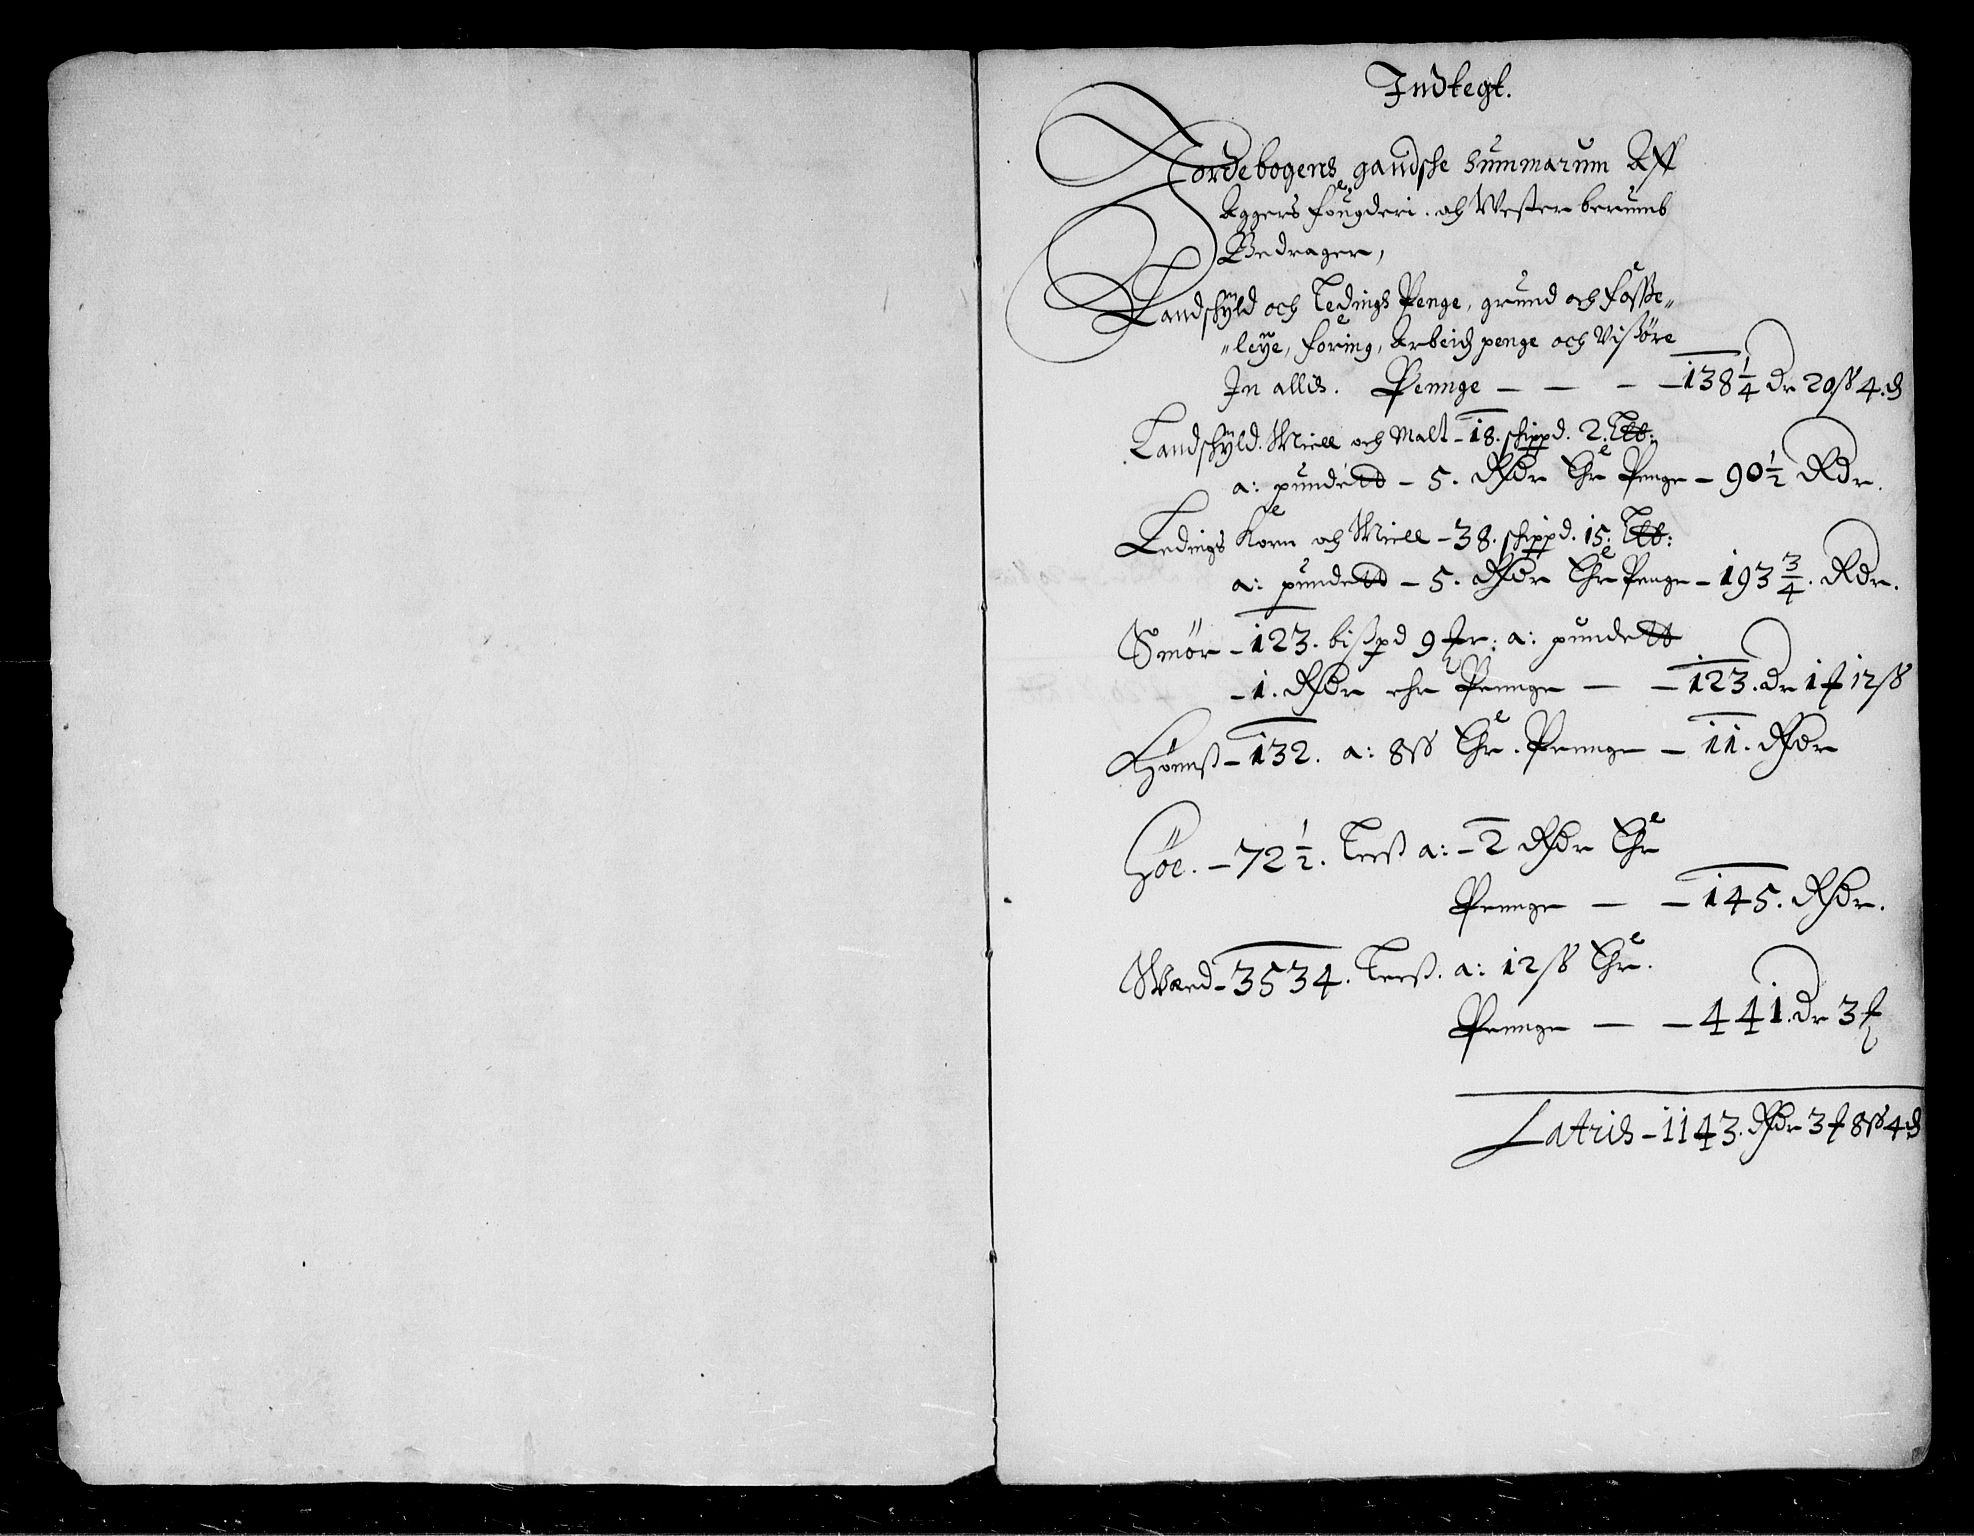 Indtegt.
Jordebogens gandsche Summarum Aff
Aggers fougderi. och Wester berumb
Bedrager,
Landschyld och Ledings Penge, grund och fosse„
„leye, foring, Arbeids penge och Visøre
In alles. Penge — — — 138 1/4 dr 20 ß 4 d
Landschyld. Miell och Malt – 18. schippd. 2. L℔:
a: pundett – 5. Rdr Ehr Penge – 90 1/2 Rdr.
Ledings Korn och Miell – 38. schippd. 15. L℔:
a: pundett – 5. Rdr Ehr Penge – 193 3/4. Rdr.
Smør – 123. bißpd 9 : a: pundett
– 1. Rdr ehr Pennge — – 123. dr 1 12 ß
Hønns – 132. a: 8 ß Ehr. Pennge – 11. Rdr
Høe. – 72 1/2. Leß a: – 2 Rdr Ehr
Pennge — – 145. Rdr.
Wed – 3534. Leß. a: 12 ß Ehr.
Pennge — – 441. dr 3
Latris – 1143. Rdr 3 8 ß 4 d